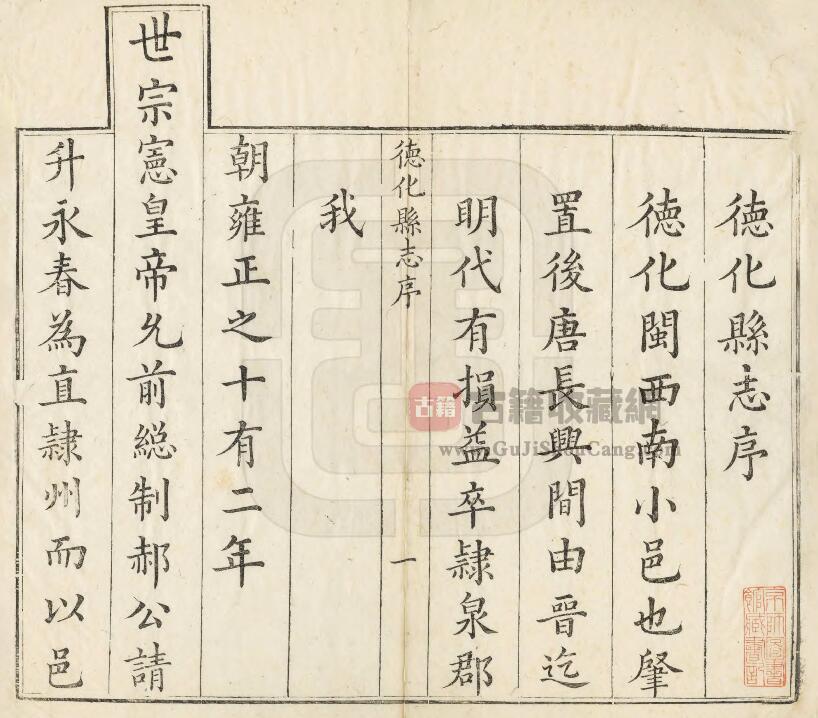 德化縣志序
德化閩西南小邑也肇
置後唐長興間由晉迄
明代有損益卒隷泉郡
德化縣志序
一
我
朝雍正之十有二年
世宗憲皇帝允前總制郝公請
升永春為直隷州而以邑
古籍
古籍收藏網
www.GuJiShouCang.com